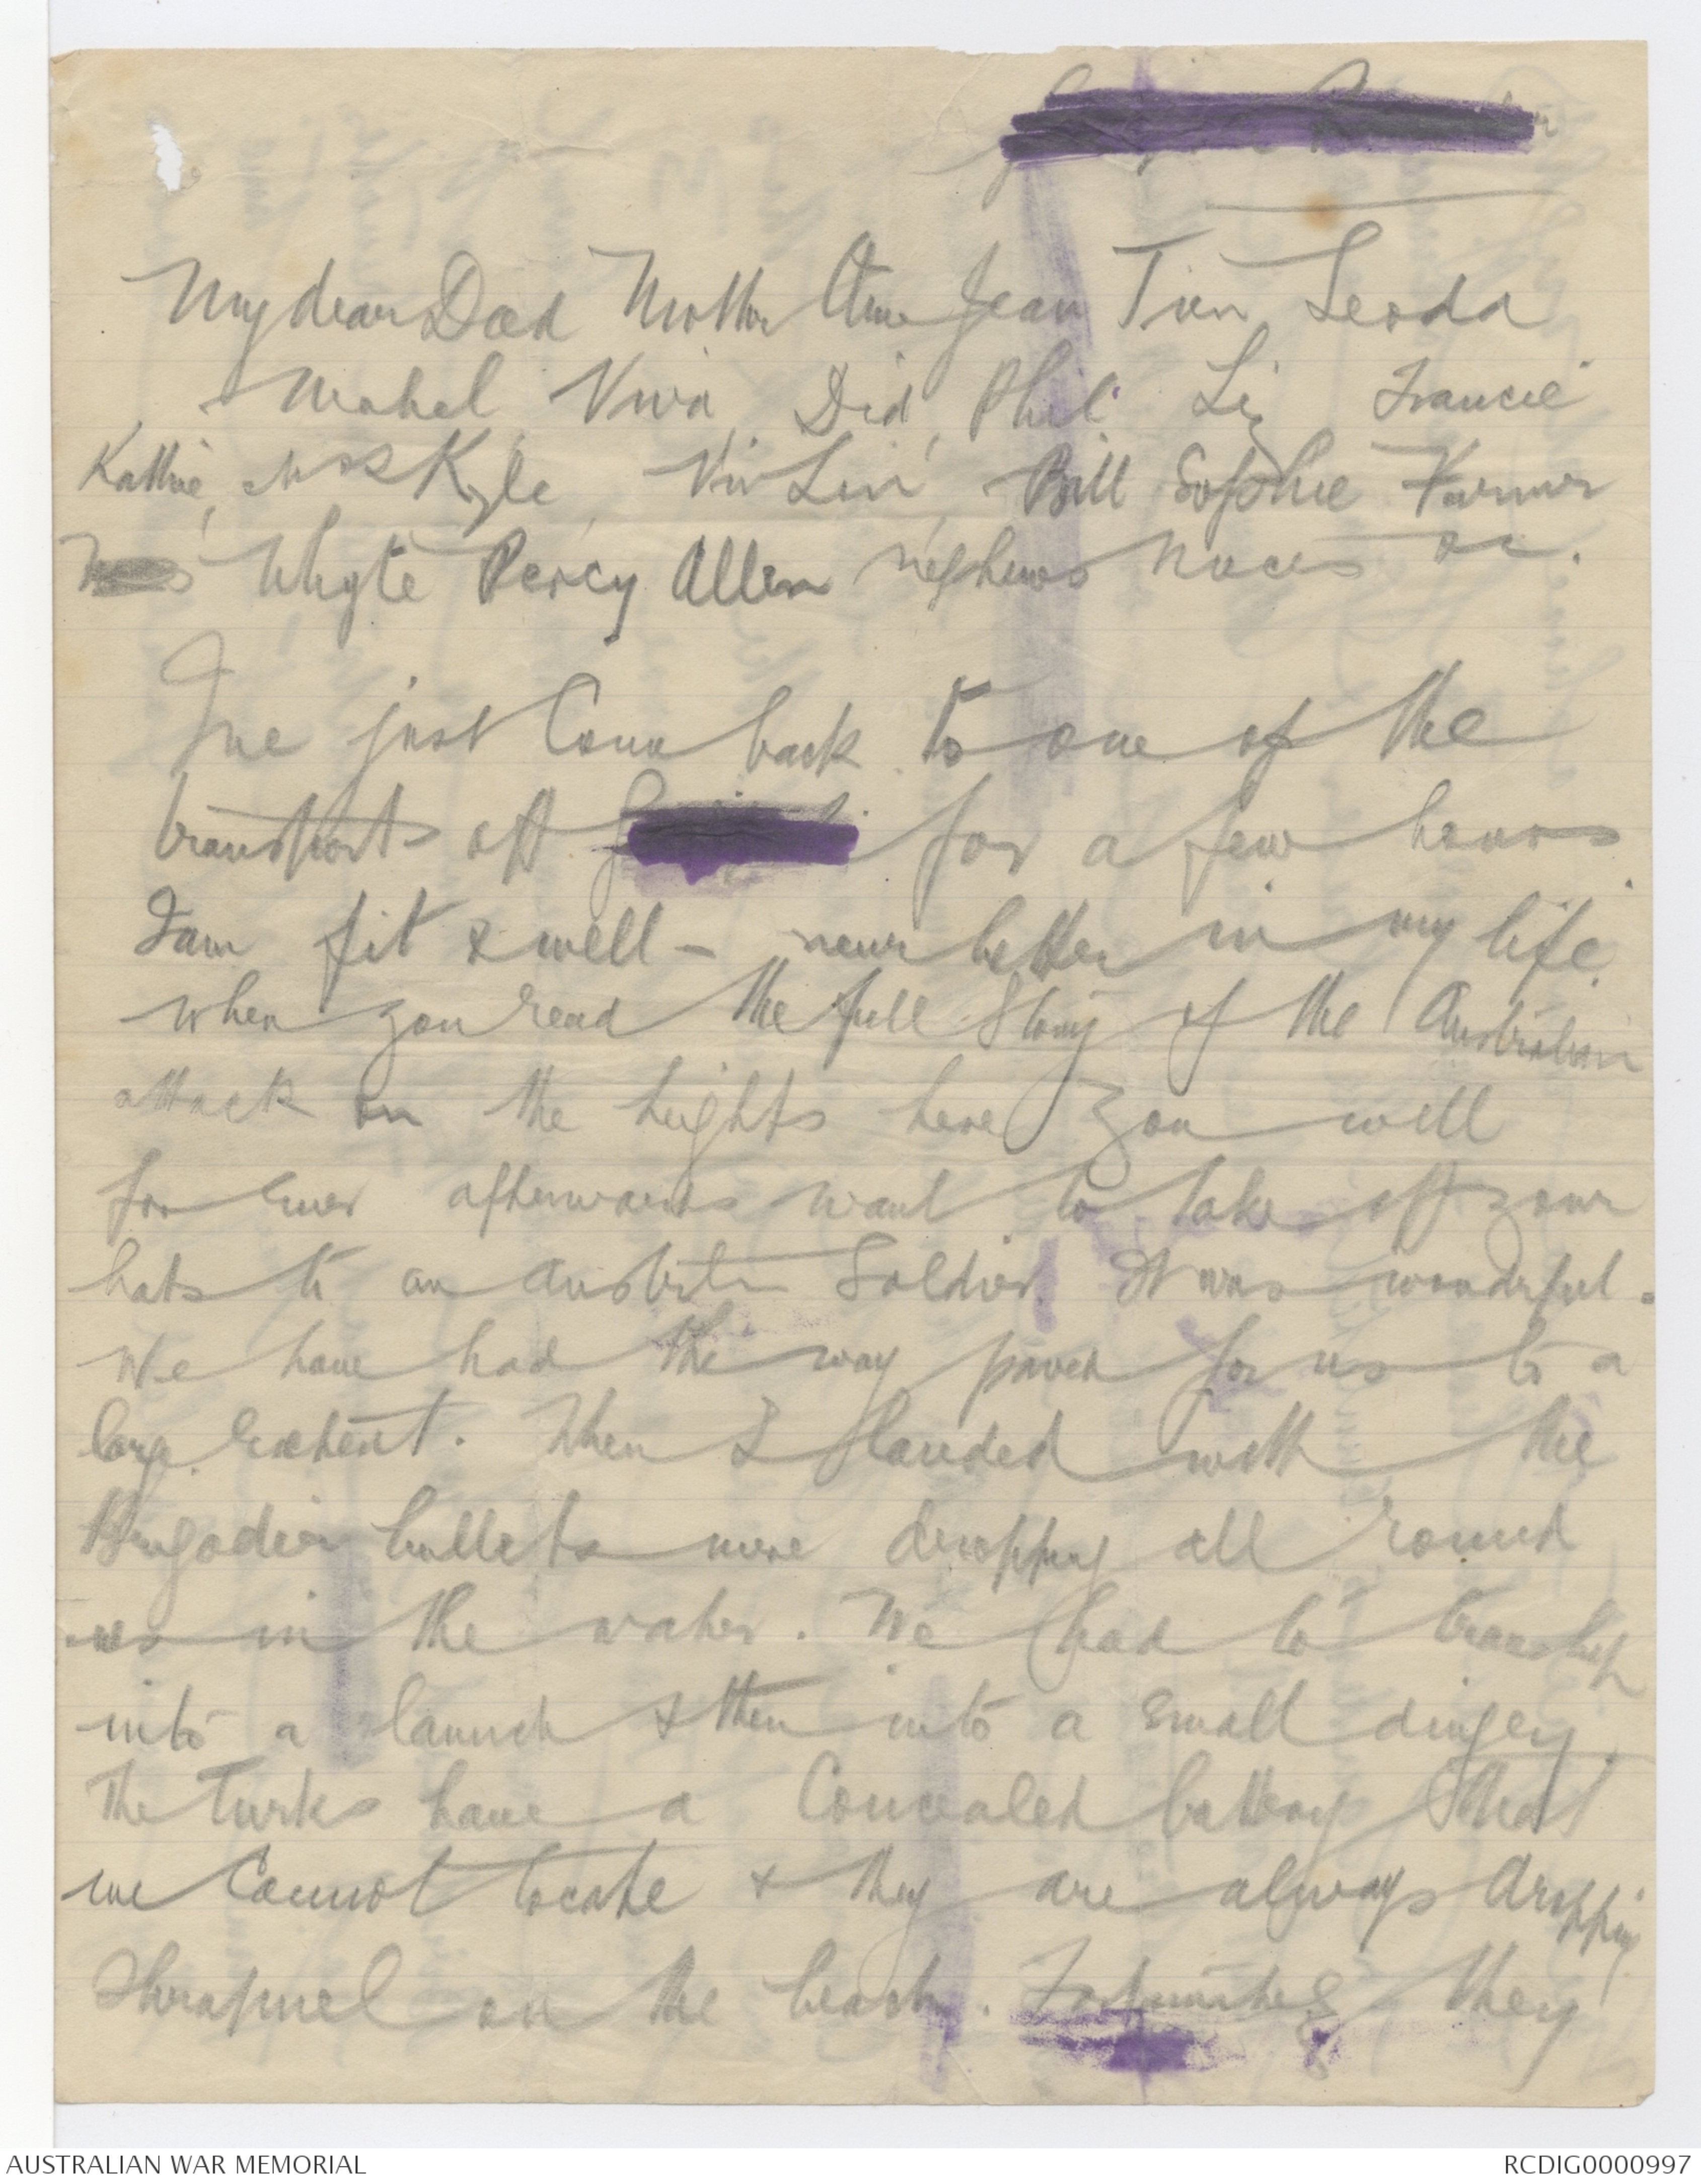 My dear Dad Mother Jean Tien Leoda
Mabel, Viva, Did, Phil Liz Francie
Kathie, Mrs Kyle, Viv Lin, Bill Sophie
Whyte Percy Allen nephews neices &c.
I've just come back to one of the
transports off for a few hours.
I am fit & well - never better in my life.
When you read the full story of the Australian
attack on the heights here you will
for ever afterwards want to take off your
hats to an Soldier. It was wonderful.
We have had the way paved for us to a
large extent. When I landed with the
Brigadier bullets were dropping all round
us in the water. We had to tranship
into a launch & then into a small dingey.
The Turks have a concealed battery that
we cannot locate & they are always dropping
shrapnel on the beach. Fortunately they
AUSTRALIAN WAR MEMORIAL
RCDIG0000997